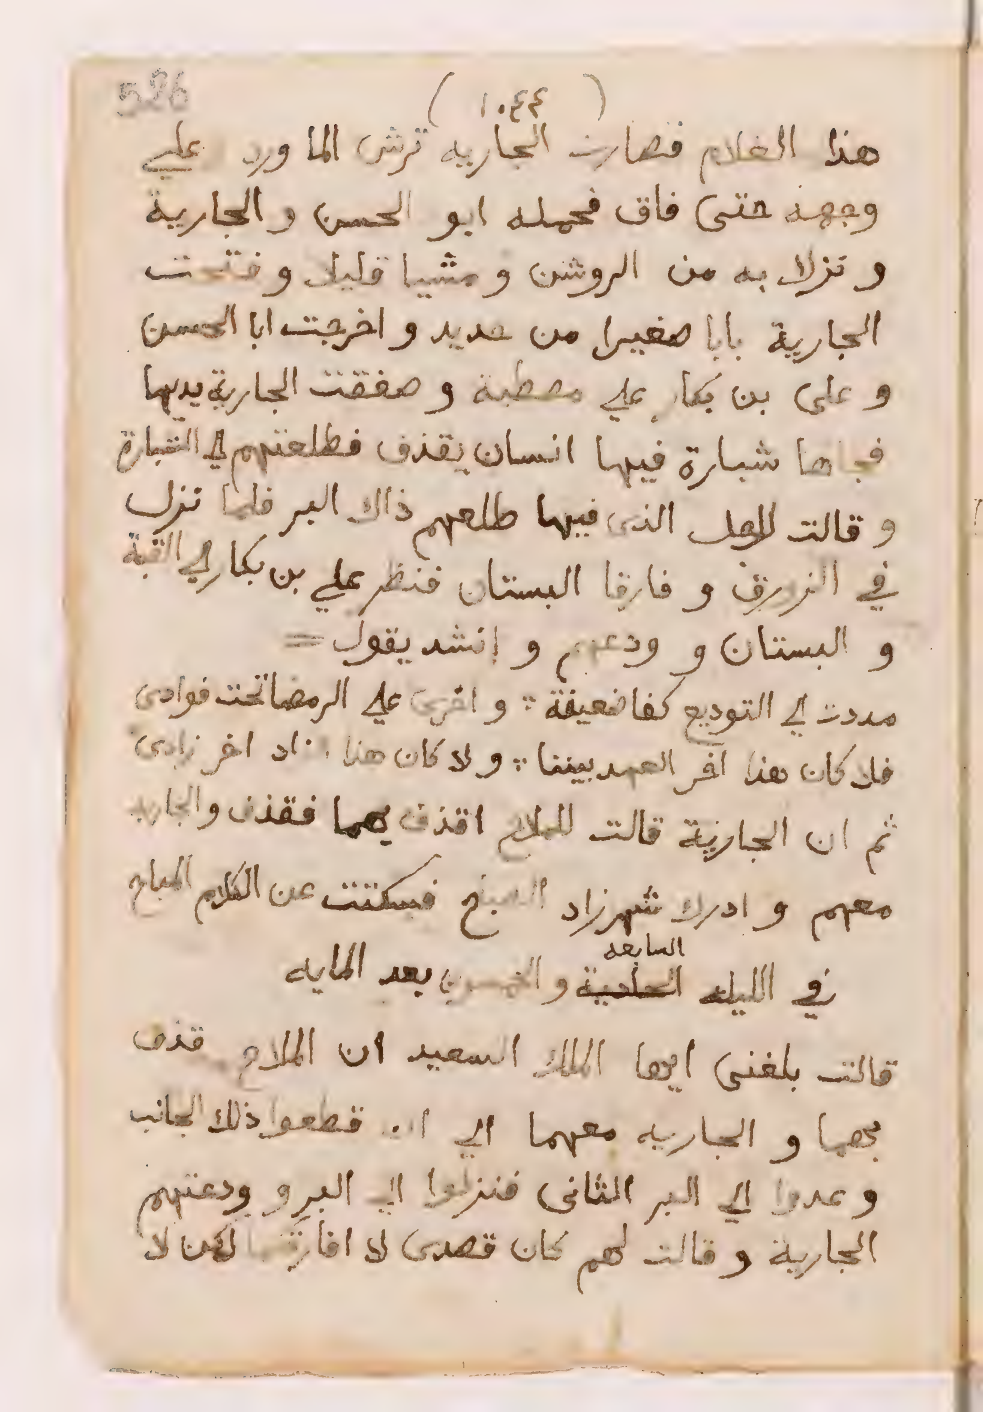 526
(١٠٤٤)
هذا الغلام فصارت الجاريه ترش الما ورد علي
وجهه حتى فاق فحمله ابو الحسن و الجارية
و نزلا به من الروشن و مشيا قليلا و فتحت
الجارية بابا صغيرا من حديد و اخرجت ابا الحسن
و على بن بكار علي مصطبة و صفقت الجارية يديها
فجاها شبارة فيها انسان يقذف فطلعتهم في الشبارة
و قالت للرجل الذى فيها طلعهم ذاك البر فلما نزل
في الزورق و فارقا البستان فنظر علي بن بكار الي القبة
و البستان و ودعهم و انشد يقول =
مددت الي التوديع كفا ضعيفة : و اخرى علي الرمضا تحت فوادى
فلا كان هذا اخر العهد بيننا : و لا كان هذا الزاد اخر زادى
ثم ان الجارية قالت للملاح اقذف بهما فقذف و الجاريه
معهم و ادرك شهرزاد الصبح فسكتت عن الكلام المباح
السابعه
في الليله الحادية و الخمسون بعد المايه
قالت بلغنى ايها الملك السعيد ان الملاح قذف
بهما و الجاريه معهما الي ان قطعوا ذلك الجانب
و عدوا الي البر الثانى فنزلوا الي البر و ودعتهم
الجارية و قالت لهم كان قصدى لا افارقكما لكن لا